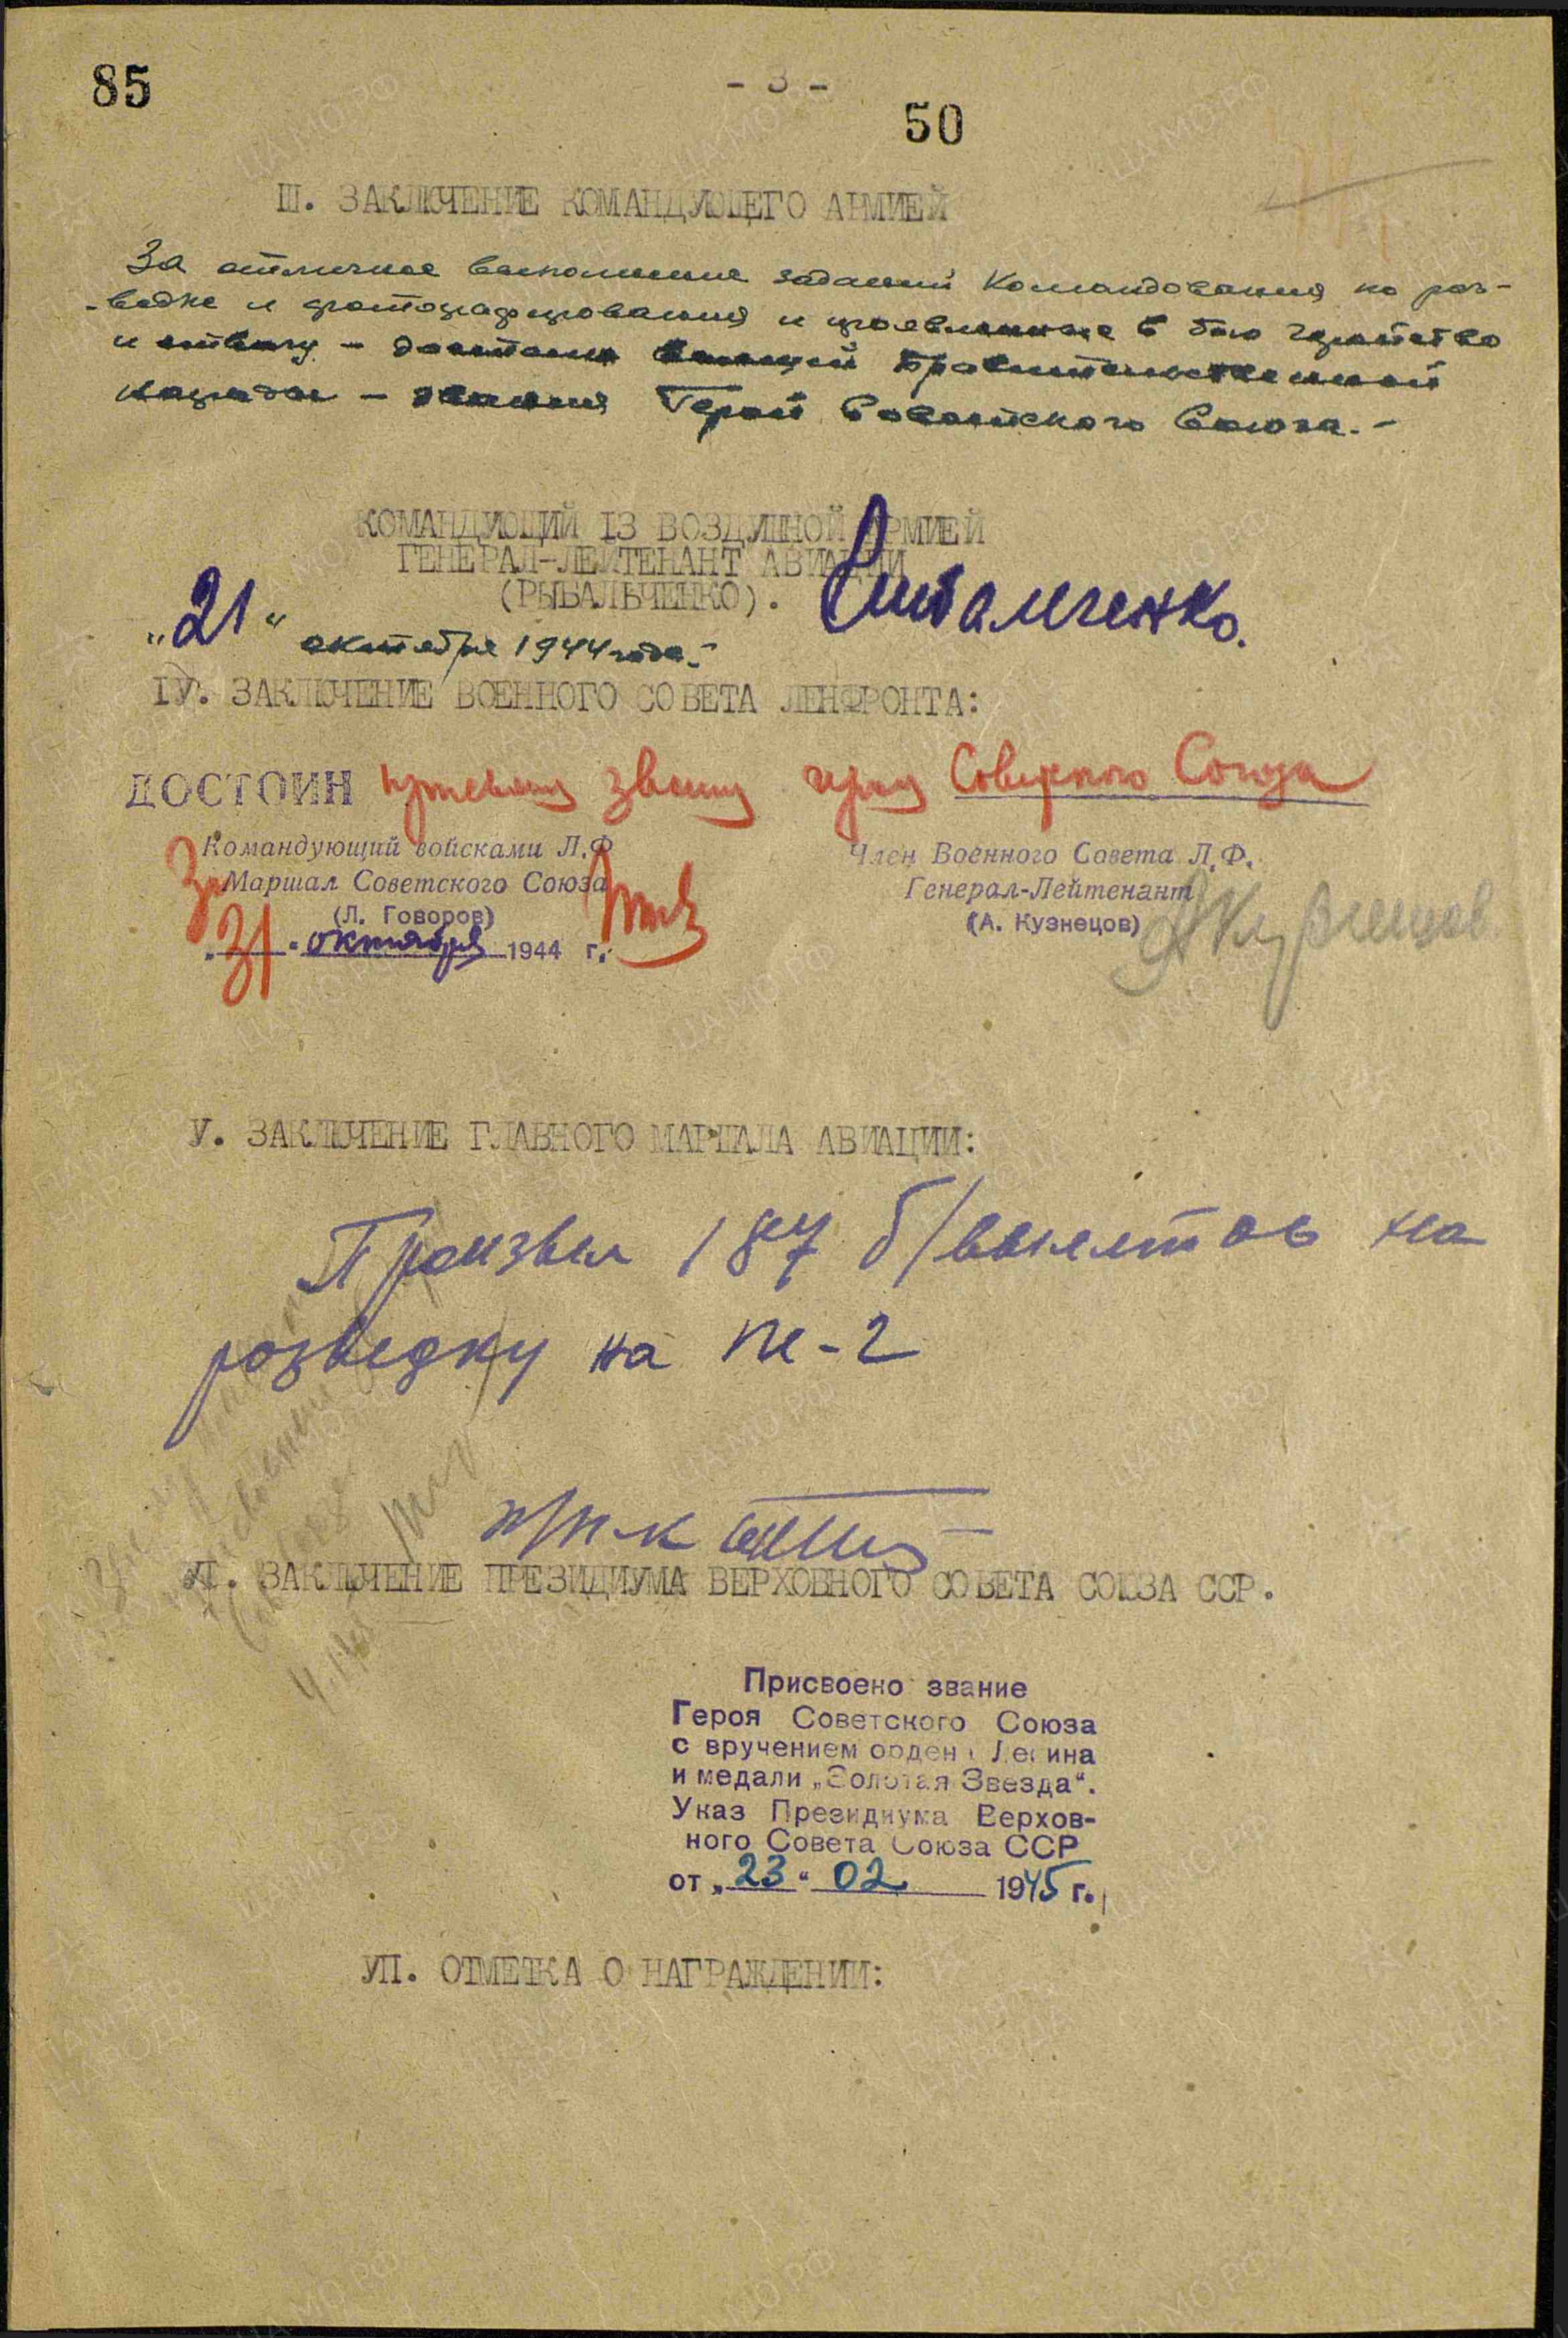 85
- 3 -
50
III. ЗАКЛЮЧЕНИЕ КОМАНДУЮЩЕГО АРМИЕЙ
За отличное выполнение заданий Командования по раз-
-ведке и фотографирования и проявленные в бою геройство
и отвагу - достоин высшей Правительственной
награды - звания Герой Советского Союза. -
КОМАНДУЮЩИЙ 13 ВОЗДУШНОЙ АРМИЕЙ
ГЕНЕРАЛ-ЛЕЙТЕНАНТ АВИАЦИИ
(РЫБАЛЬЧЕНКО).
"21" октября 1944 года.-
IУ. ЗАКЛЮЧЕНИЕ ВОЕННОГО СОВЕТА ЛЕНФРОНТА:
ДОСТОИН присвоения звания героя Советского Союза
Командующий войсками Л.Ф
Маршал Советского Союза
(Л. Говоров)
"31" октября 1944 г.
Член Военного Совета Л.Ф.
Генерал-Лейтенант
(А. Кузнецов)
АКузнецов
У. ЗАКЛЮЧЕНИЕ ГЛАВНОГО МАРШАЛА АВИАЦИИ:
Произвел 187 б/вылетов на
розведку на Пе-2
УI. ЗАКЛЮЧЕНИЕ ПРЕЗИДИУМА ВЕРХОВНОГО СОВЕТА СОЮЗА ССР.
Присвоено звание
Героя Советского Союза
с вручением ордена Ленина
и медали „Золотая Звезда“.
Указ Президиума Верхов-
ного Совета Союза ССР
от „23“ 02 1945 г.
УII. ОТМЕТКА О НАГРАЖДЕНИИ: